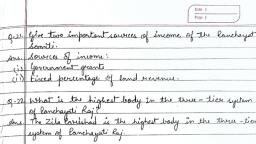 Date
Page
Q.21. Give two important sources of income of the Panchayat
Samiti.
Ans. Sources of income:
(i) Government grants
(ii) Fixed percentage of land revenue.
Q.22. What is the highest body in the three-tier system
of Panchayati Raj?
Ans The Zila Parishad is the highest body in the three-tier
system of Panchayati Raj.